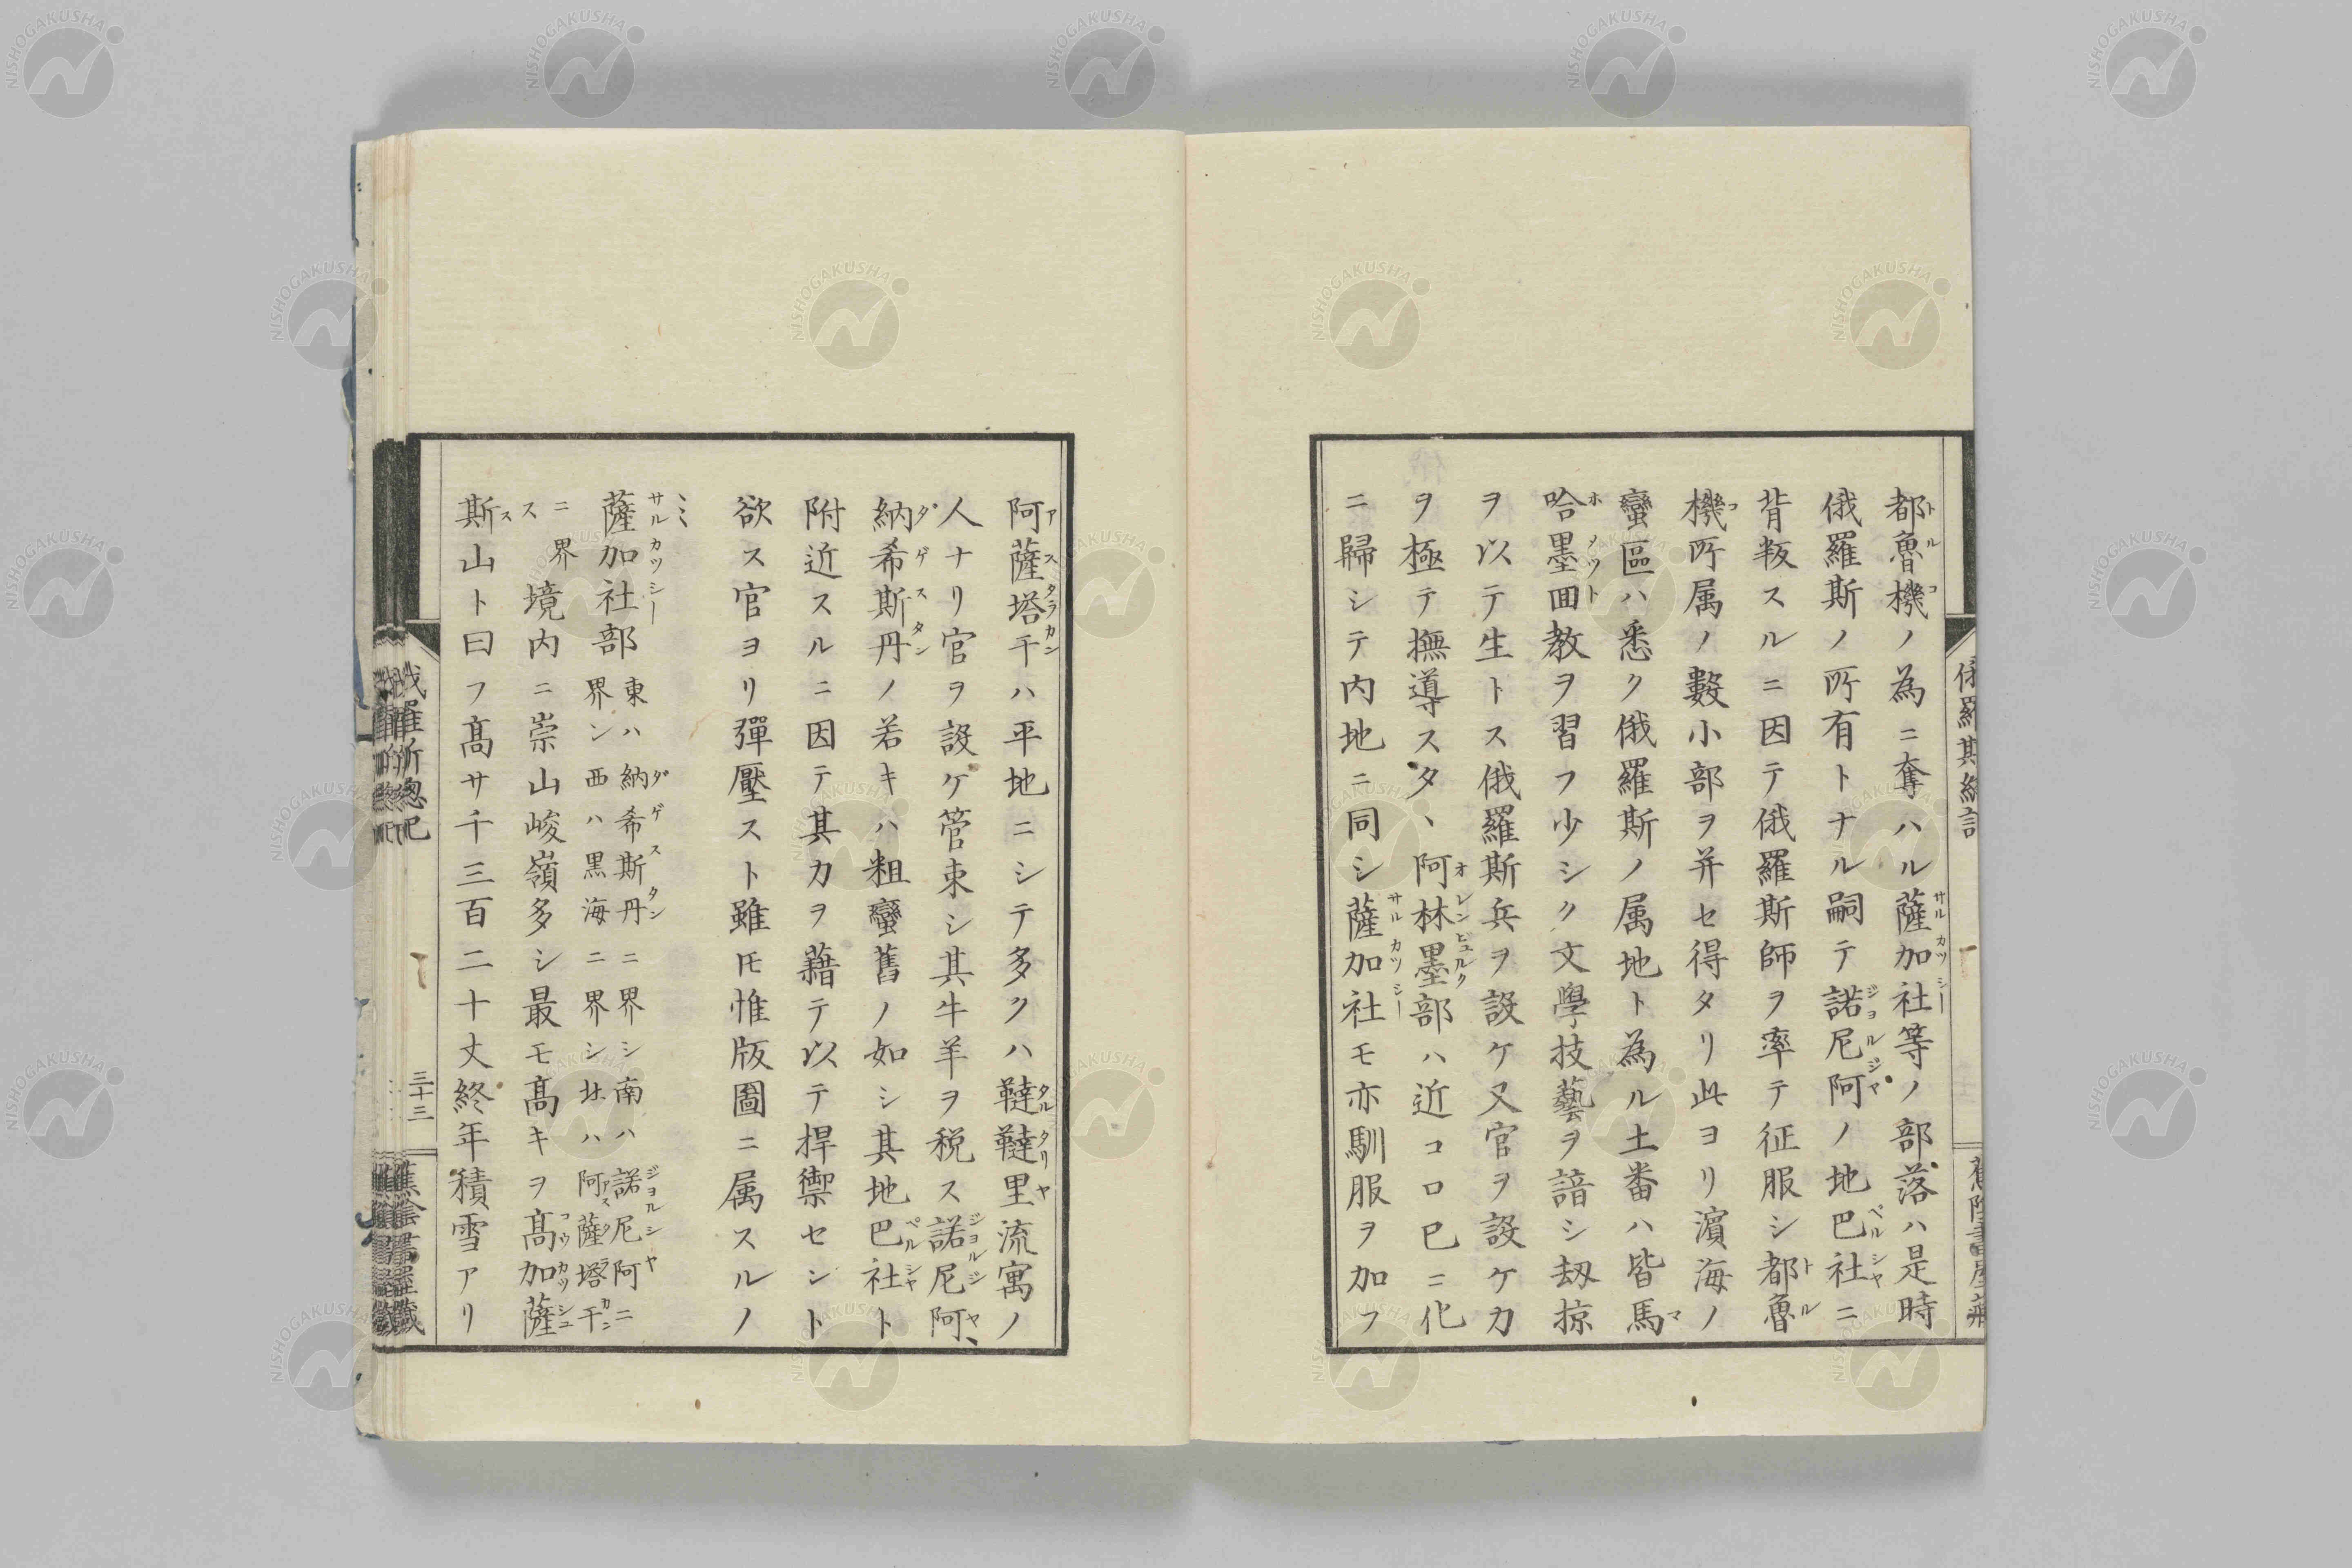 都魯機ノ為ニ奪ハル薩加社等ノ部落ハ是時
俄羅斯ノ所有トナル嗣テ諾尼阿ノ地巴社ニ
背叛スルニ因テ俄羅斯師ヲ率テ征服シ都魯
機所属ノ數小部ヲ并セ得タリ此ヨリ濵海ノ
蠻區ハ悉ク俄羅斯ノ属地ト為ル土番ハ皆馬
哈墨囬教ヲ習フ少シク文學技藝ヲ諳シ刼掠
ヲ以テ生トス俄羅斯兵ヲ設ケ又官ヲ設ケ力
ヲ極テ撫導スタヽ阿林墨部ハ近コロ已ニ化
ニ歸シテ内地ニ同シ薩加社モ亦馴服ヲ加フ
阿薩塔干ハ平地ニシテ多クハ韃韃里流寓ノ
人ナリ官ヲ設ケ管束シ其牛羊ヲ税ス諾尼阿、
納希斯丹ノ若キハ粗蠻舊ノ如シ其地巴社ト
附近スルニ因テ其力ヲ藉テ以テ捍禦セント
欲ス官ヨリ彈壓スト雖𪜈惟版圖ニ属スルノ
ミ
薩加社部
東ハ納希斯丹ニ界シ南ハ諾尼阿ニ
界ン西ハ黒海ニ界シ北ハ阿薩塔干
ニ界
ス
境内ニ崇山峻嶺多シ最モ髙キヲ髙加薩
斯山ト曰フ髙サ千三百二十丈終年積雪アリ
俄羅斯總記
三十三
NISHOGAKUSHA